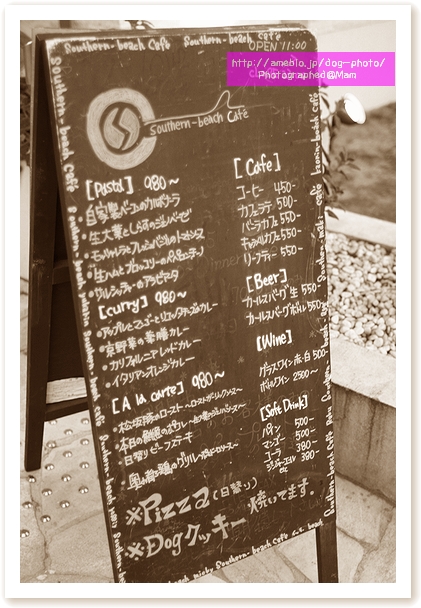 Southern-beach Café Southern-beach café
OPEN 11:00
http://ameblo.jp/dog-photo/
Photographed@Mam
Southern-beach Café
[Pasta] 980~
・自家製ベーコンのカルボナーラ
・生大葉としらすのジェノベーゼ
・モッツァレラとフレッシュバジルのトマトソース
・生ハムとブロッコリーのペペロンチーノ
[curry] 980~
カレー
・京野菜の薬膳カレー
・カリフォルニアレッドカレー
・イタリアンオレンジカレー
[A la carte] 980~
・松阪豚のロースト
・本日の鮮魚のポワレ
・日替りビーフステーキ
[Cafe]
コーヒー 450-
カフェラテ 500-
バニラカフェ 550-
キャラメルカフェ 550-
ハーブティー 550-
[Beer]
カールスバーグ生 550-
カールスバーグボトル 550-
[Wine]
グラスワイン 赤・白 500-
ボトルワイン 2500~
[Soft Drink]
パイン 500-
マンゴー 500-
コーラ 380-
ジンジャーエール etc 380-
※Pizza(日替り)
※Dogクッキー 焼いてます。